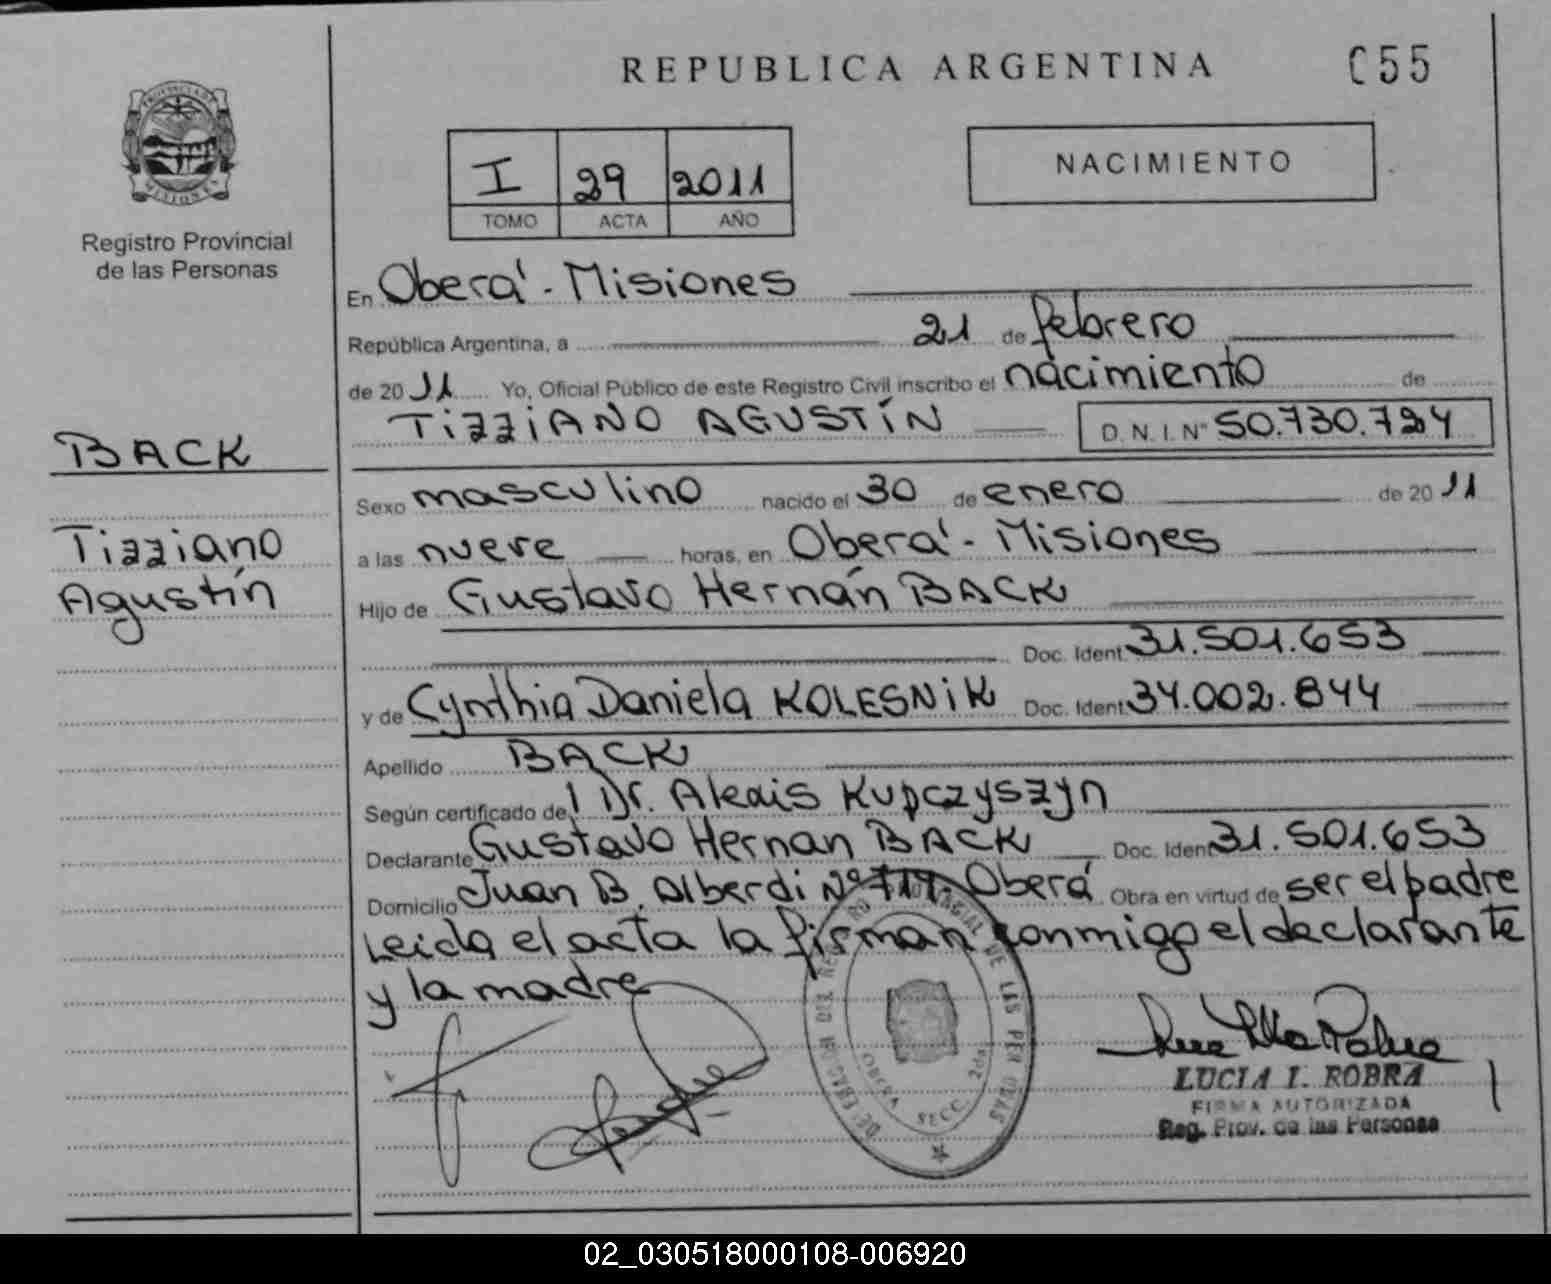 REPUBLICA ARGENTINA
C55
PROVINCIA DE
MISIONES
Registro Provincial
de las Personas
I 29 2011
TOMO ACTA AÑO
NACIMIENTO
En Oberá - Misiones
República Argentina, a 21 de febrero
de 2011 Yo, Oficial Público de este Registro Civil inscribo el nacimiento de
TIZZIANO AGUSTÍN D. N. I. Nº 50.730.724
BACK
Tizziano
Agustín
Sexo masculino nacido el 30 de enero de 2011
a las nueve horas, en Oberá - Misiones
Hijo de Gustavo Hernán BACK
Doc. Ident. 31.501.653
y de Cynthia Daniela KOLESNIK Doc. Ident. 34.002.844
Apellido BACK
Según certificado del Dr. Alexis Kupczyszyn
Declarante Gustavo Hernan BACK Doc. Ident. 31.501.653
Domicilio Juan B. Alberdi Nº Oberá Obra en virtud de ser el padre
Leida el acta la firman conmigo el declarante
y la madre
OBERA SECC. 2da
LUCIA I. ROBRA
FIRMA AUTORIZADA
Reg. Prov. de las Personas
02_030518000108-006920